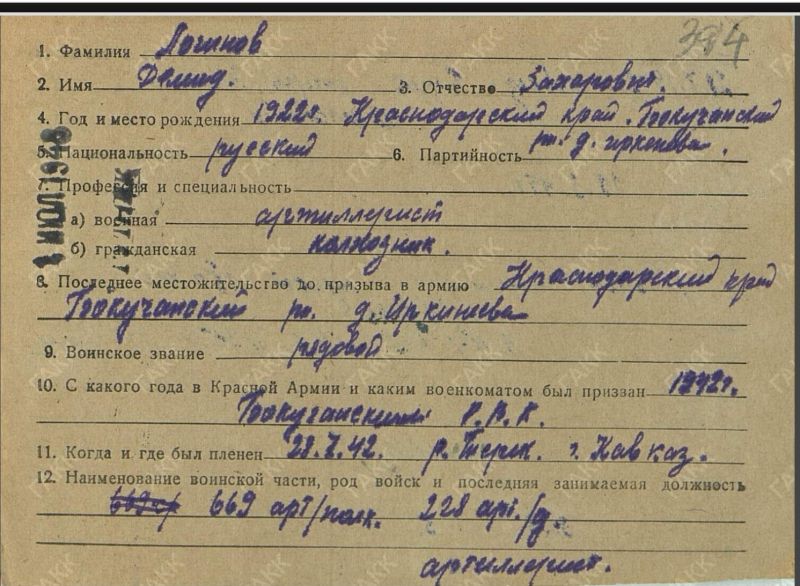 384
1. Фамилия Логинов
2. Имя Демид. 3. Отчество Захарович.
4. Год и место рождения 1922г. Краснодарский край. Бокучанский
5. Национальность русский 6. Партийность рн. д. иркенева.
7. Профессия и специальность
а) военная артиллерист
б) гражданская колхозник.
8. Последнее местожительство до призыва в армию Краснодарский край
Бокучанский рн. д. Иркинева
9. Воинское звание рядовой
10. С какого года в Красной Армии и каким военкоматом был призван 1942г.
Бокучанским Р.В.К.
11. Когда и где был пленен 42. р. Терек. г. Кавказ.
12. Наименование воинской части, род войск и последняя занимаемая должность
669 арт/полк. 228 арт./д.
артиллерист.
ИЮЛ 1948
ГАКК